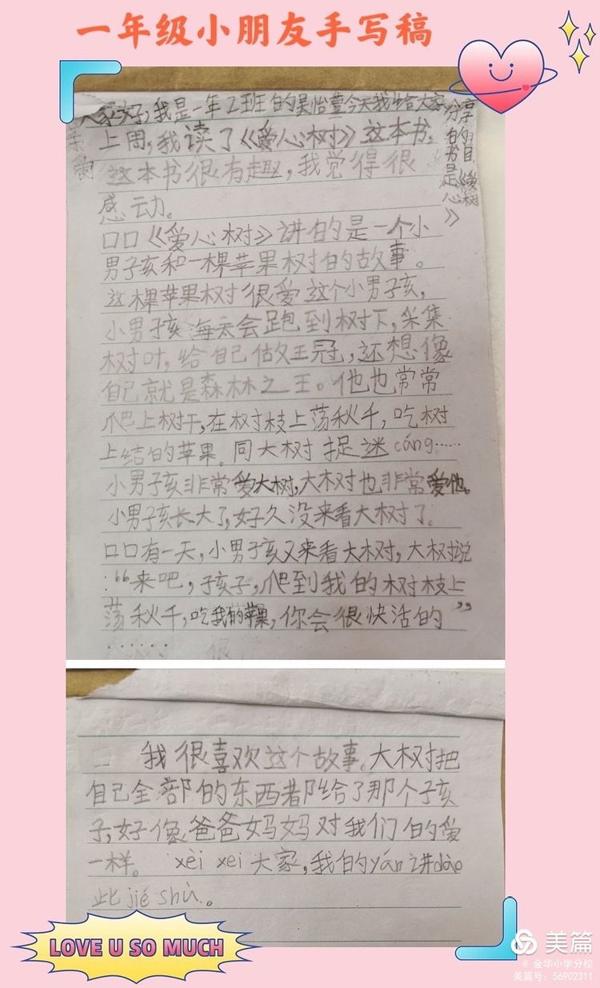 一年级小朋友手写稿
大家好,我是一年2班的吴怡萱今天我给大家
分享的书目是《爱心树》
上周,我读了《爱心树》这本书,
这本书很有趣,我觉得很
感动。
口口《爱心树》讲的是一个小
男孩和一棵苹果树的故事。
这棵苹果树很爱这个小男孩,
小男孩每天会跑到树下,采集
树叶,给自己做王冠,还想像
自己就是森林之王。他也常常
爬上树干,在树枝上荡秋千,吃树
上结的苹果。同大树捉迷cáng……
小男孩非常爱大树,大树也非常爱他。
小男孩长大了,好久没来看大树了。
口口有一天,小男孩又来看大树,大树说
:“来吧,孩子,爬到我的树枝上
荡秋千,吃我的苹果,你会很快活的”
……
我很喜欢这个故事。大树把
自己全部的东西都给了那个孩
子,好像爸爸妈妈对我们的爱
一样。 xèi xei 大家,我的yán讲dào
此jié shù。
LOVE U SO MUCH
美篇
@ 金华小学分校
美篇号:56902311